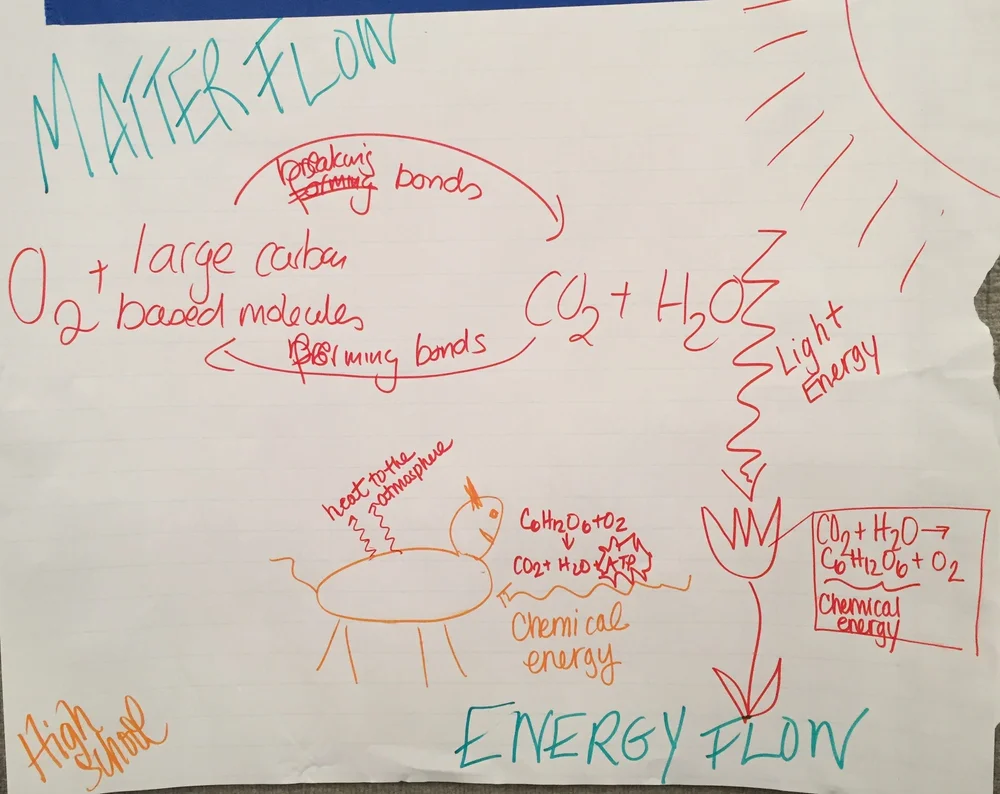 MATTER FLOW
breaking
forming bonds
O2 + large carbon
based molecules
CO2 + H2O
forming bonds
Light
Energy
heat to the
atmosphere
C6H12O6+O2
↓
CO2 + H2O + ATP
Chemical
energy
CO2 + H2O →
C6H12O6 + O2
Chemical
energy
High
School
ENERGY FLOW